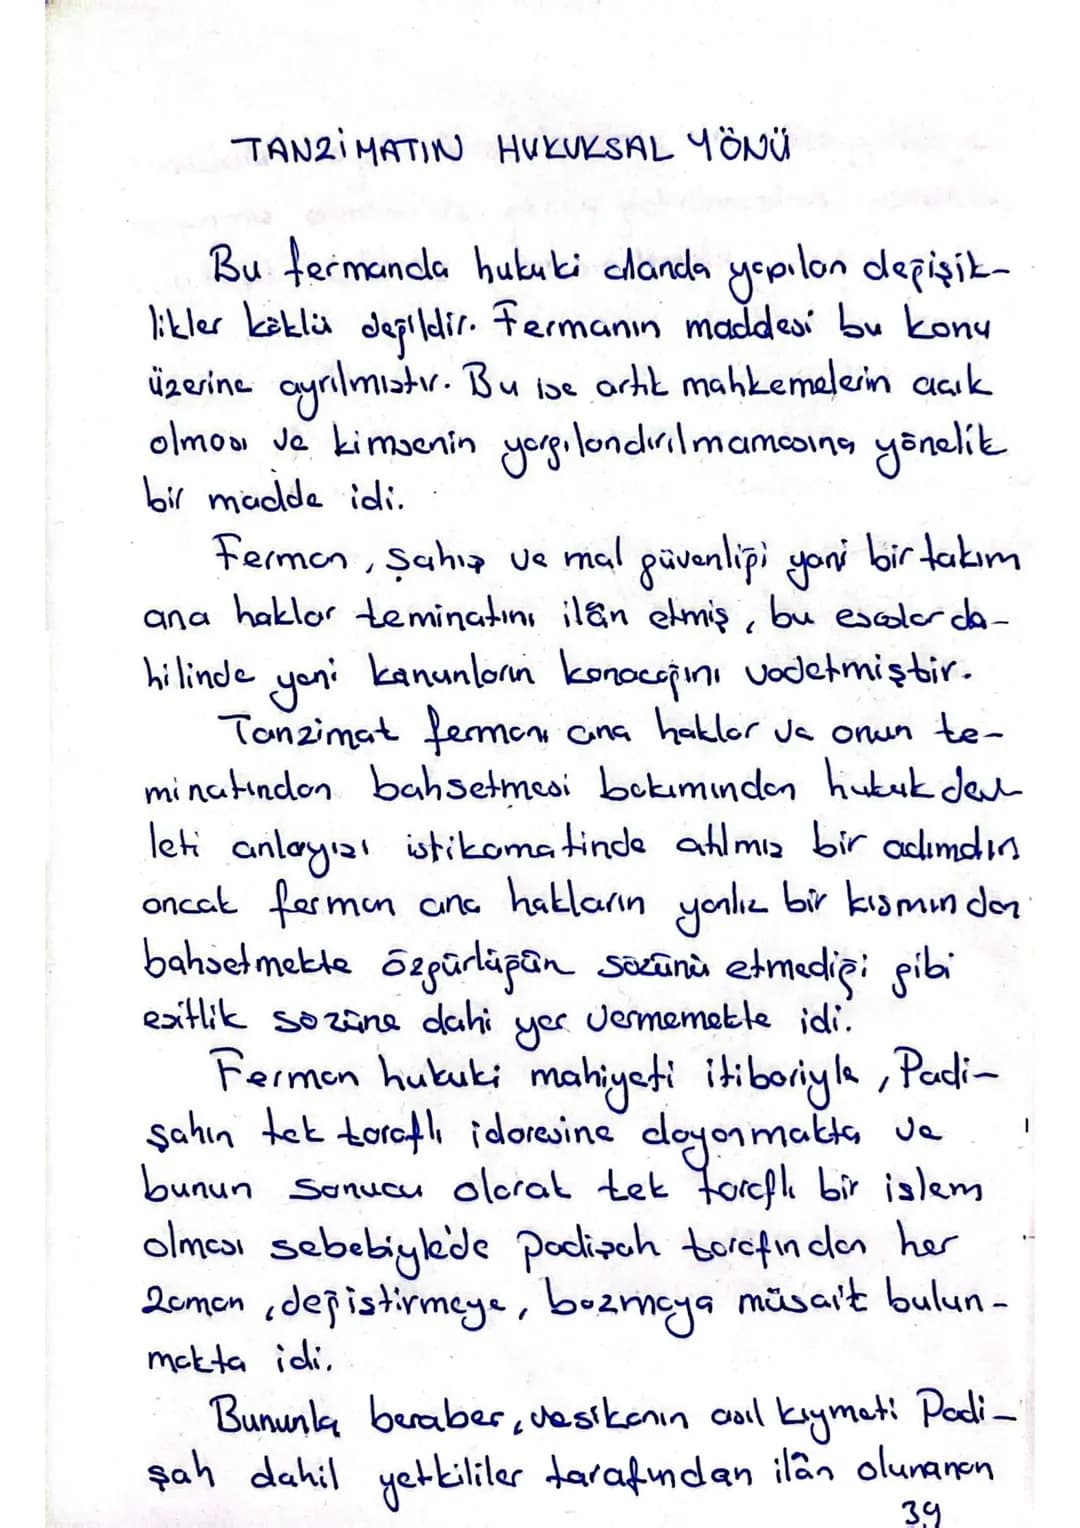 TANZİMATIN HUKUKSAL YÖNÜ
Bu fermanda hukuki alanda yapılan değişik-
likler köklü değildir. Fermanın maddesi bu konu
üzerine ayrılmıştır. Bu ise artık mahkemelerin acık
olması ve kimsenin yargılandırılmamasına yönelik
bir madde idi.
Ferman, Şahış ve mal güvenliği yani bir takım
ana haklar teminatını ilân etmiş, bu esaslar da-
hilinde yeni kanunların konacağını vadetmiştir.
Tanzimat fermanı ana haklar ve onun te-
minatından bahsetmesi bakımından hukuk dev
leti anlayızı istikametinde atılmız bir adımdır
ancak ferman ana hakların yanlız bir kısmından
bahsetmekte özgürlüğün sözünü etmediği gibi
esitlik sözüne dahi yer vermemekte idi.
Ferman hukuki mahiyeti itibariyle, Padi-
şahın tek taraflı idaresine dayanmakta ve
bunun sonucu olarak tek taraflı bir islem
olması sebebiyle'de padişah tarafından her
zaman, değistirmeye, bozmaya müsait bulun-
makta idi.
Bununla beraber, vesikanın asıl kıymeti Padi-
şah dahil yetkililer tarafından ilân olunanan
39